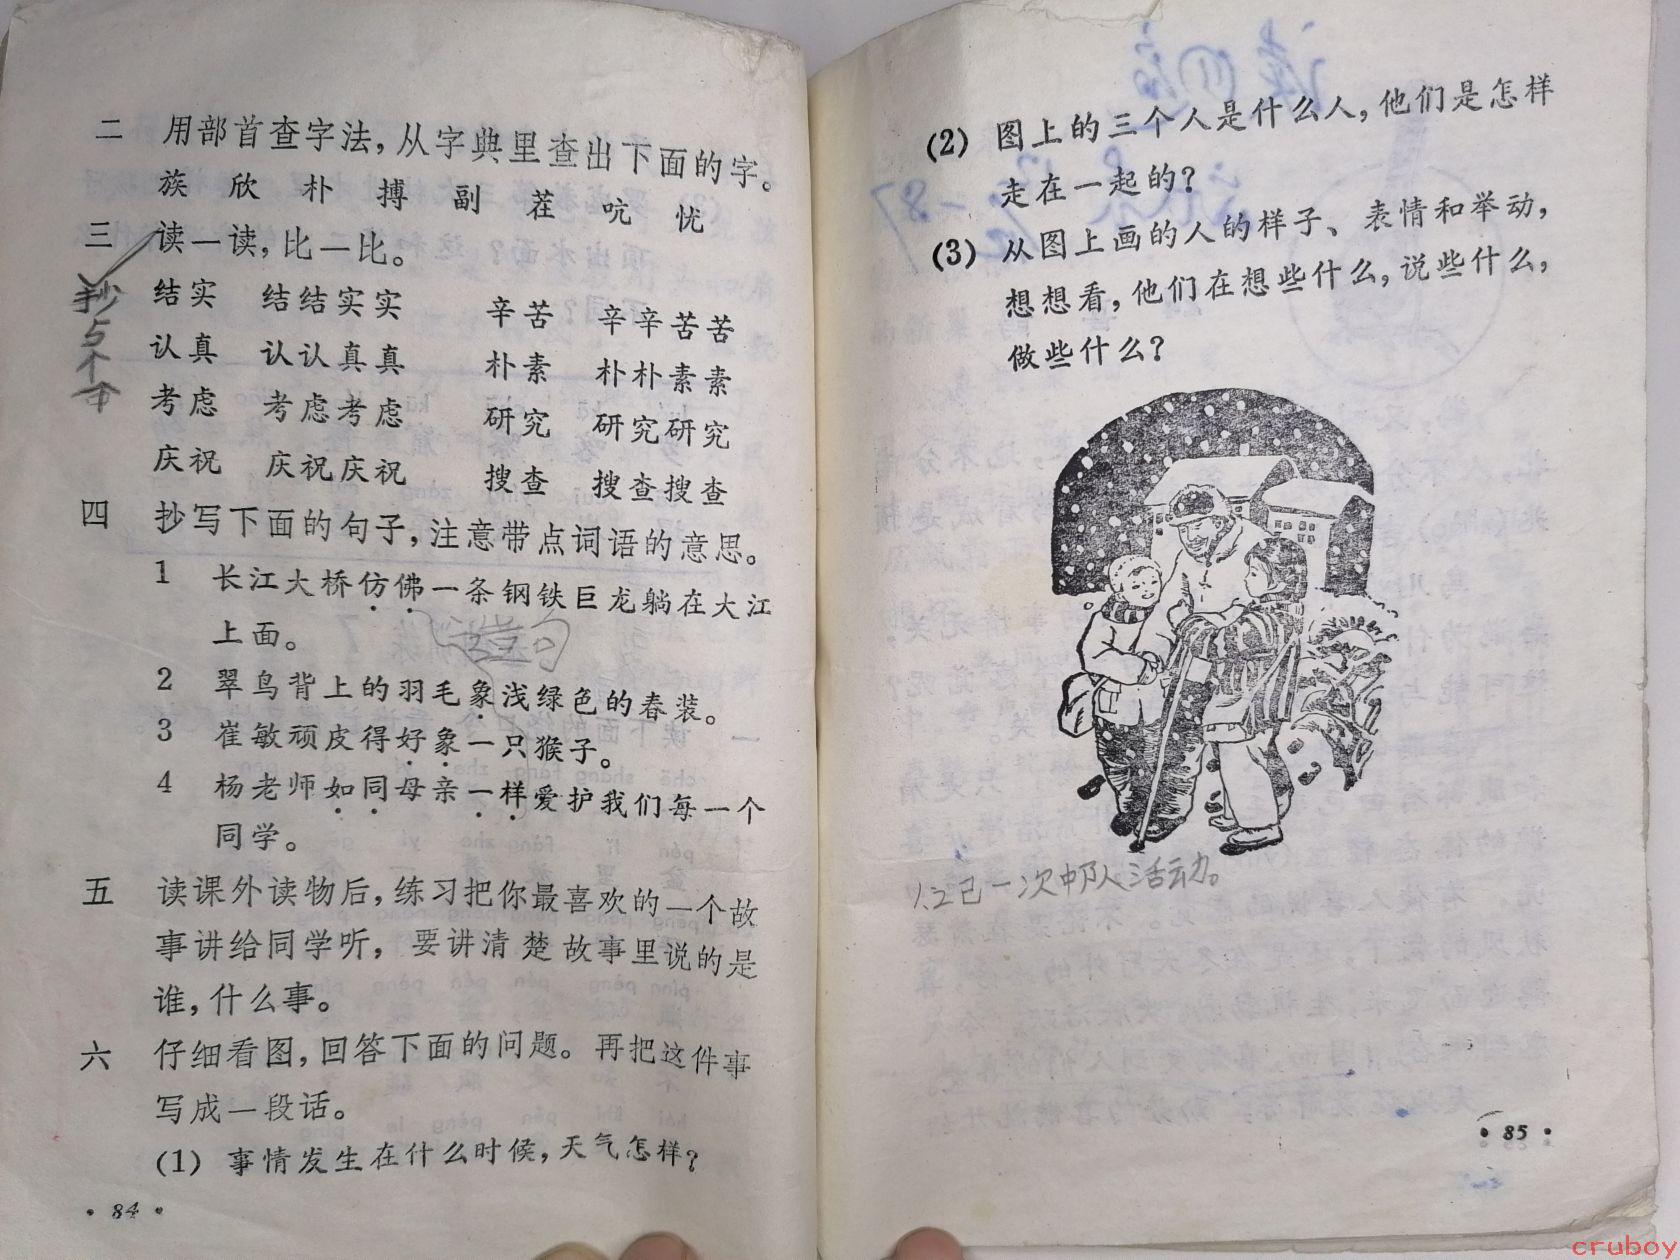 二 用部首查字法，从字典里查出下面的字。
族 欣 朴 搏 副 茬 吭 忧
三 读一读，比一比。
结实 结结实实 辛苦 辛辛苦苦
认真 认认真真 朴素 朴朴素素
考虑 考虑考虑 研究 研究研究
庆祝 庆祝庆祝 搜查 搜查搜查
抄5个
四 抄写下面的句子，注意带点词语的意思。
1 长江大桥仿佛一条钢铁巨龙躺在大江
上面。
造句
2 翠鸟背上的羽毛象浅绿色的春装。
3 崔敏顽皮得好象一只猴子。
4 杨老师如同母亲一样爱护我们每一个
同学。
五 读课外读物后，练习把你最喜欢的一个故
事讲给同学听，要讲清楚故事里说的是
谁，什么事。
六 仔细看图，回答下面的问题。再把这件事
写成一段话。
(1) 事情发生在什么时候，天气怎样？
·84·
(2) 图上的三个人是什么人，他们是怎样
走在一起的？
(3) 从图上画的人的样子、表情和举动，
想想看，他们在想些什么，说些什么，
做些什么？
一次中队活动。
·85·
cruboy